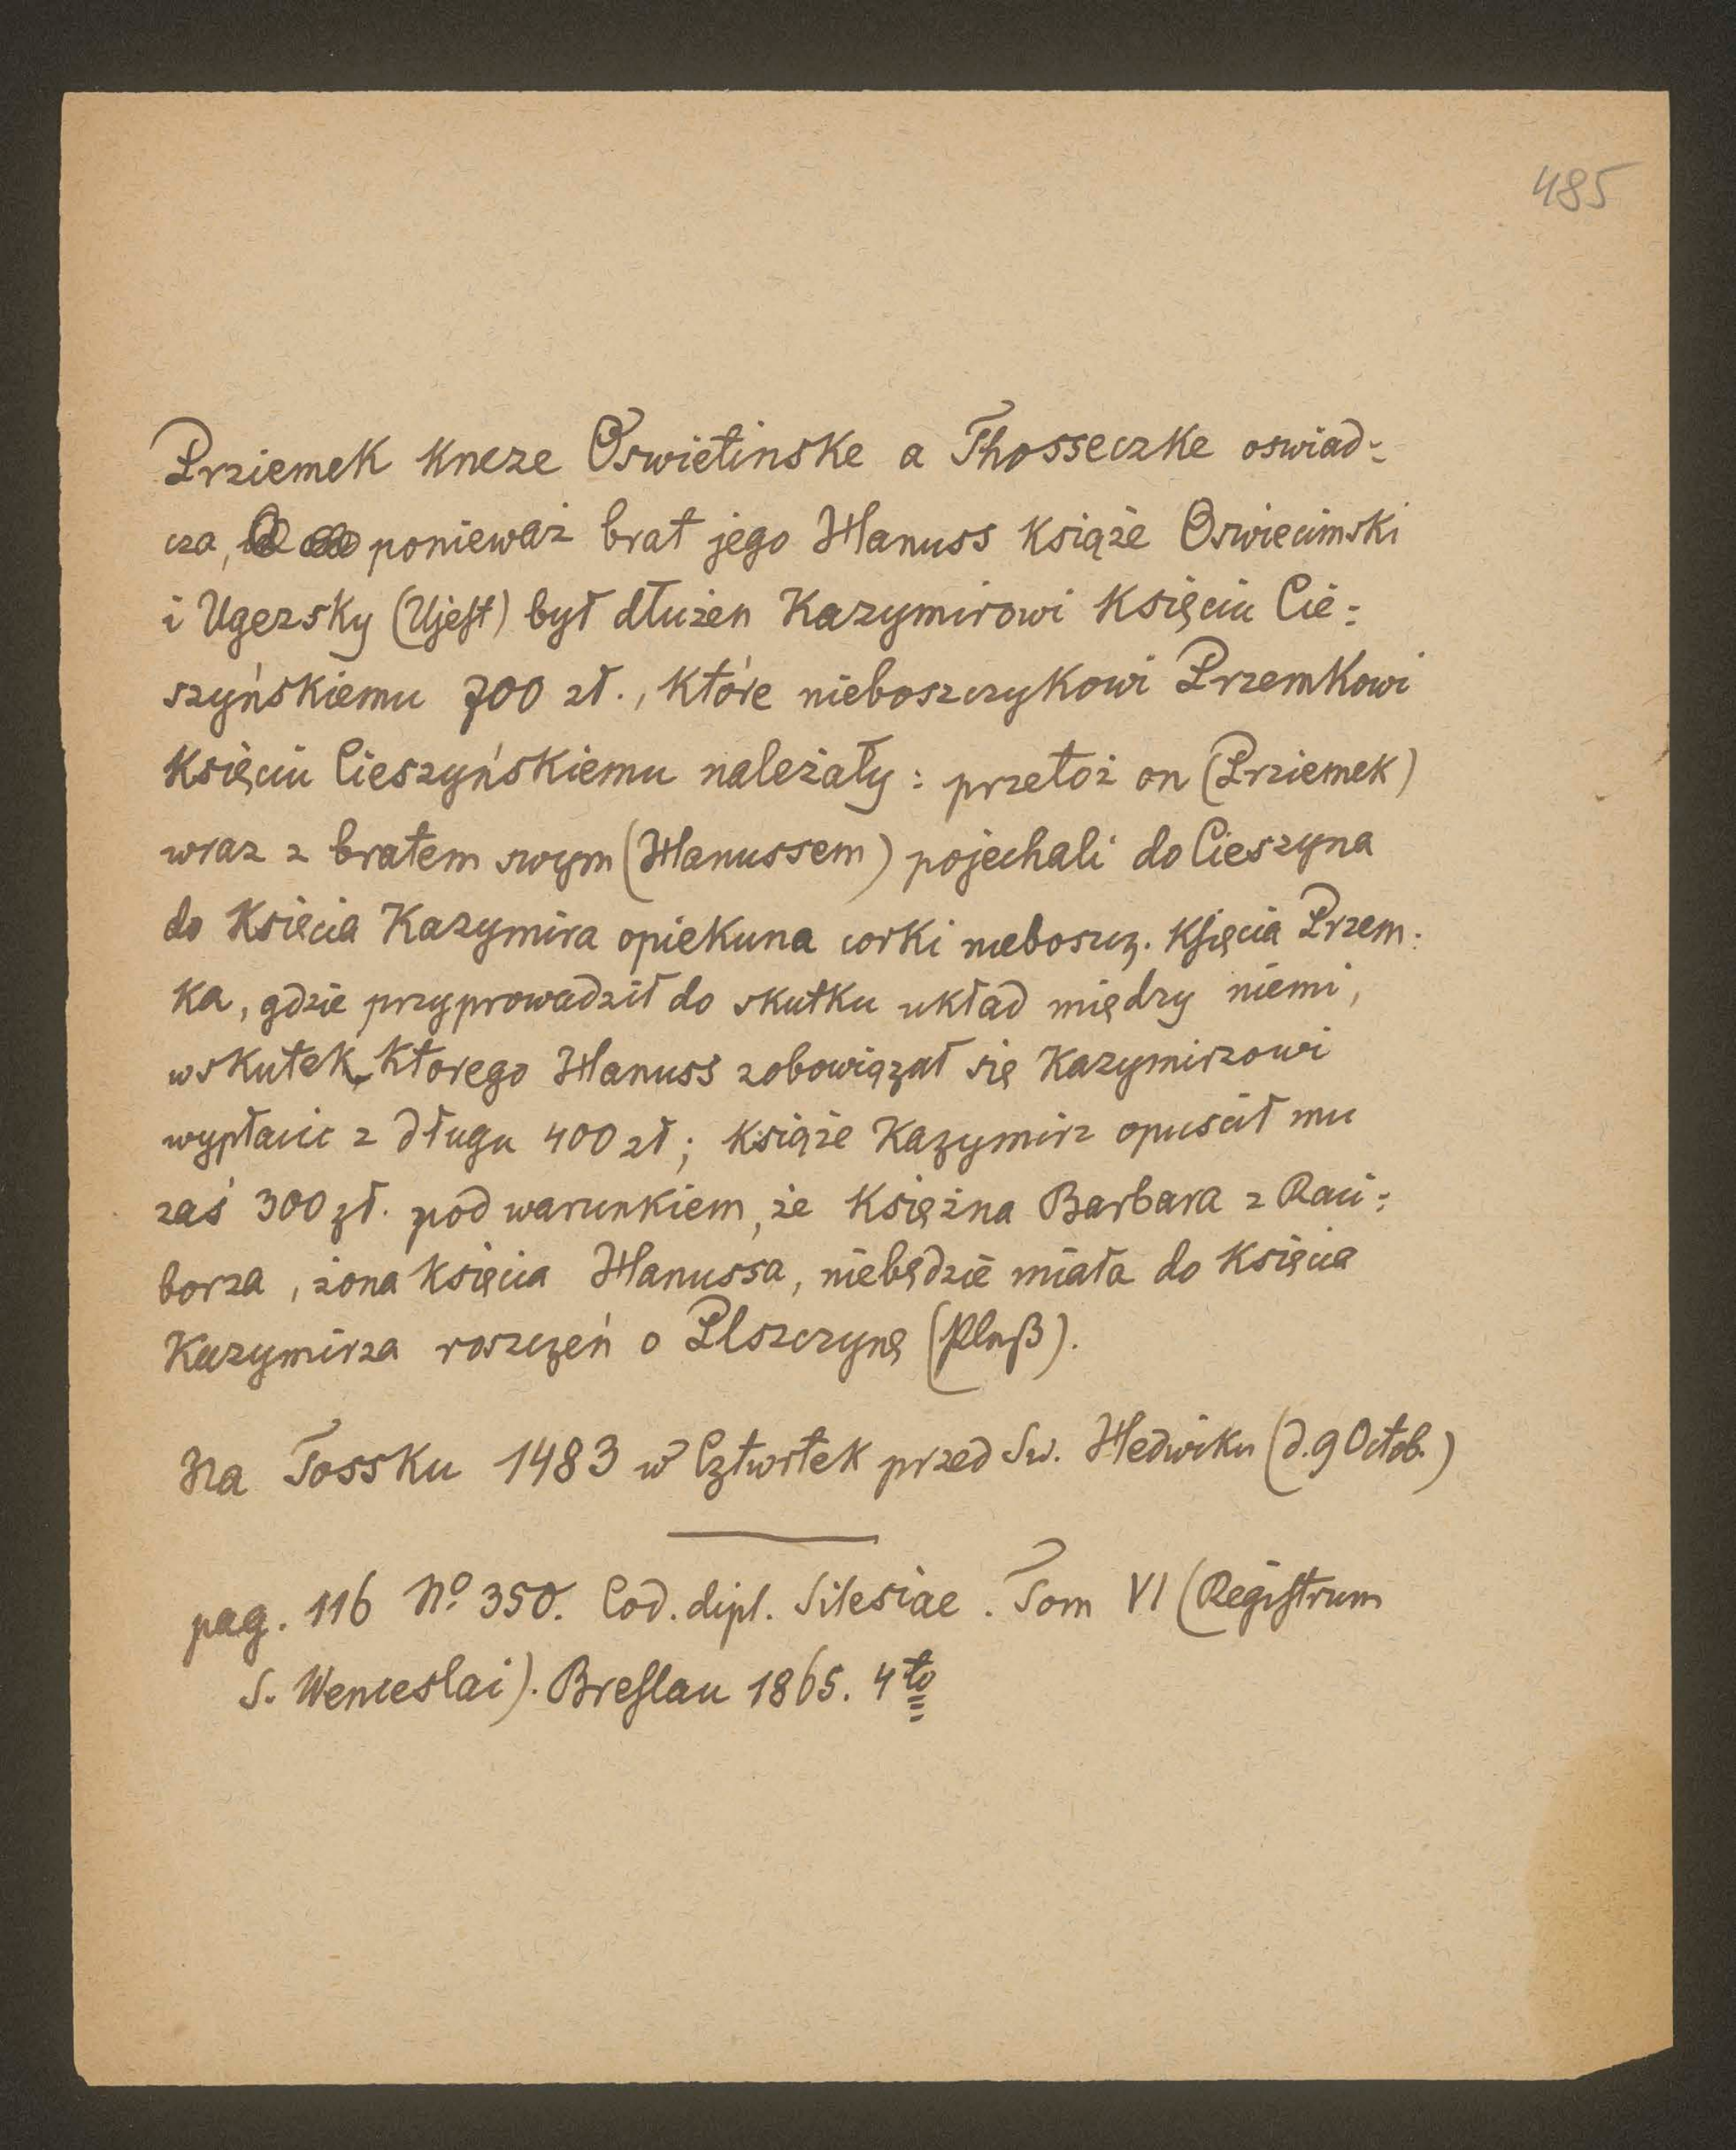 485
Prziemek kneze Oswietinske a Thosseczke oswiad=
cza, ponieważ brat jego Hanuss książe Oswiecimski
i Ugezsky (Ujest) był dłużen Kazymirowi księciu Cie=
szyńskiemu 700 zł., które nieboszczykowi Przemkowi
księciu Cieszyńskiemu należały: przetoż on (Prziemek)
wraz z bratem swym (Hanussem) pojechali do Cieszyna
do księcia Kazymira opiekuna corki nieboszcz. księcia Przem=
ka, gdzie przyprowadził do skutku układ między niemi,
wskutek ktorego Hanuss zobowiązał się Kazymirzowi
wypłacic z długu 400 zł; książe Kazymirz opuscił mu
zaś 300 zł. pod warunkiem, że księżna Barbara z Raci=
borza, żona księcia Hanussa, niebędzie miała do księcia
Kazymirza roszczeń o Plszczynę (Pleß).
Na Tossku 1483 w Cztwrtek przed Sw. Hedwiku (d. 9 Octob.)
pag. 116 No 350. Cod. dipl. Silesiae. Tom VI (Registrum
S. Wenceslai). Breslau 1865. 4to